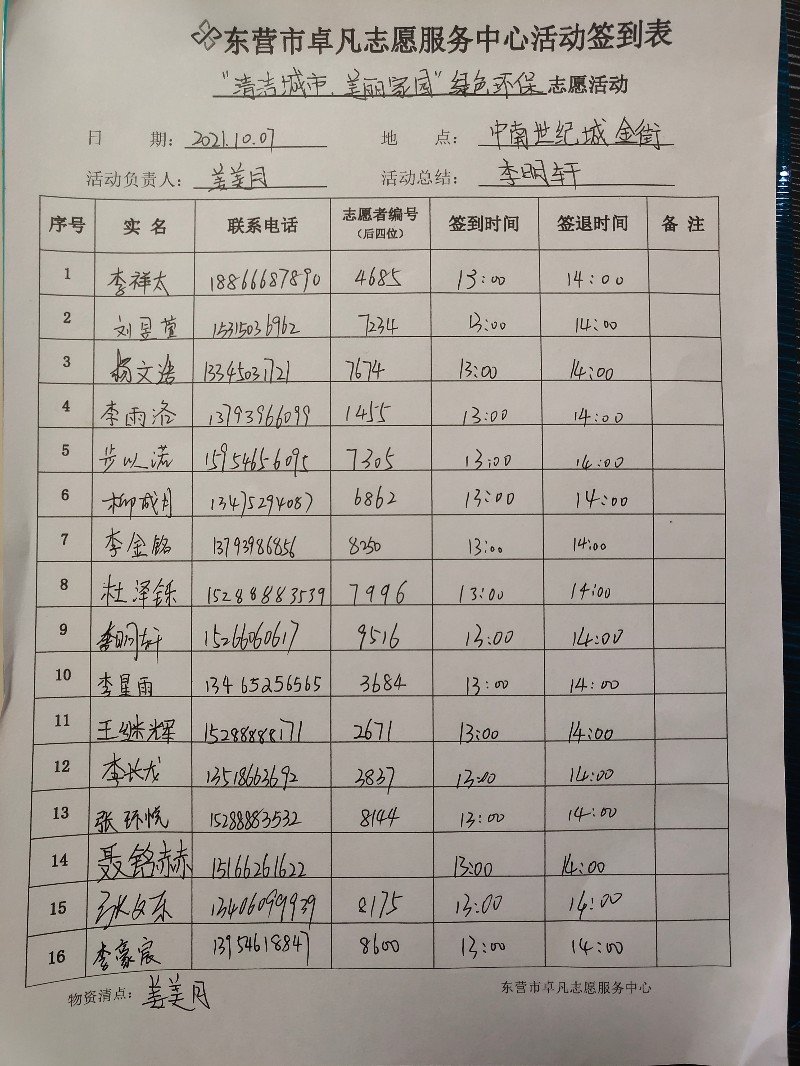 东营市卓凡志愿服务中心活动签到表
"清洁城市、美丽家园"绿色环保 志愿活动
日 期: 2021.10.07 地 点: 中南世纪城金街
活动负责人: 姜美月 活动总结: 李明轩
序号 实 名 联系电话 志愿者编号(后四位) 签到时间 签退时间 备 注
1 李祥太 18866687890 4685 13:00 14:00
2 刘昱萱 15315036962 7234 13:00 14:00
3 杨文浩 13345031721 7674 13:00 14:00
4 李雨洛 13793966099 1455 13:00 14:00
5 步以诺 15954656095 7305 13:00 14:00
6 柳成月 13475294087 6862 13:00 14:00
7 李金铭 13793986856 8250 13:00 14:00
8 杜泽铄 15288883539 7996 13:00 14:00
9 李明轩 15266060617 9516 13:00 14:00
10 李星雨 13465256565 3684 13:00 14:00
11 王继辉 15288888171 2671 13:00 14:00
12 李长龙 13518663692 3837 13:00 14:00
13 张环悦 15288883532 8144 13:00 14:00
14 聂铭赫 15166261622 13:00 14:00
15 13406099939 8175 13:00 14:00
16 李豪宸 13954618847 8600 13:00 14:00
物资清点: 姜美月 东营市卓凡志愿服务中心